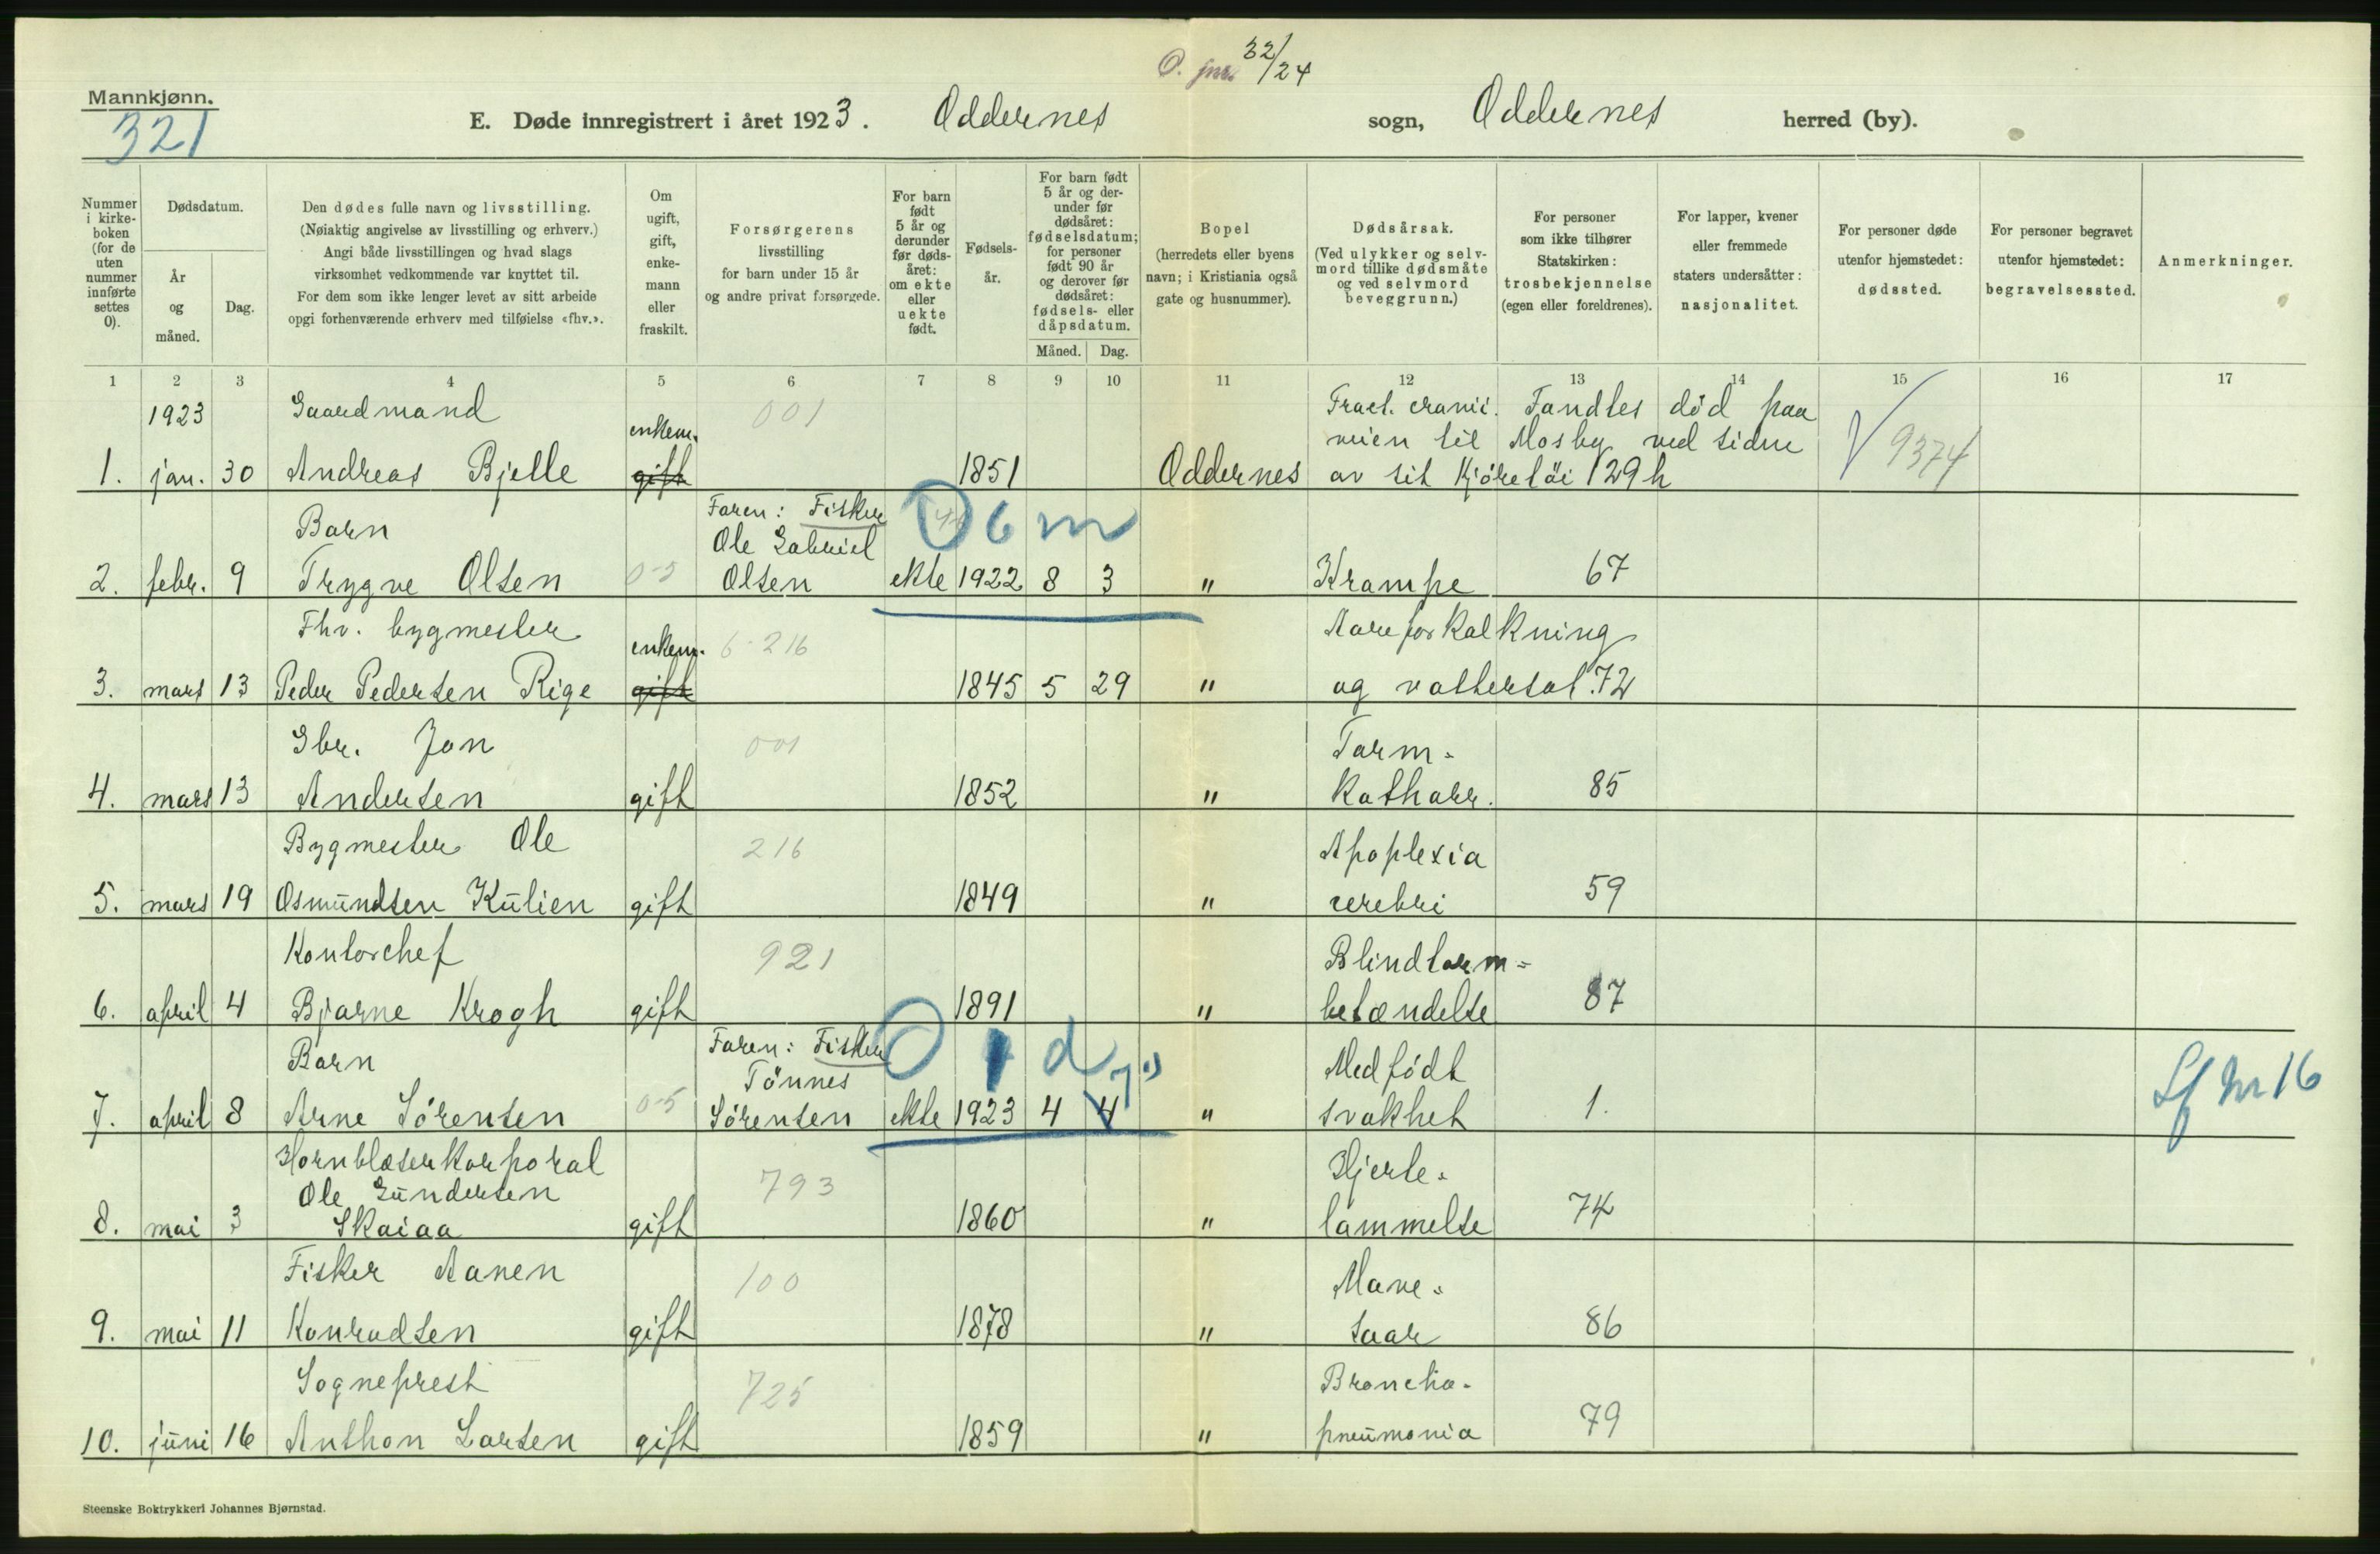 O. jnr. 32/24
Mannkjønn.
321
E. Døde innregistrert i året 1923. Oddernes sogn, Oddernes herred (by).
Nummer i kirke-boken (for de uten nummer innførte settes 0).
Dødsdatum.
År og måned.
Dag.
Den dødes fulle navn og livsstilling.
(Nøiaktig angivelse av livsstilling og erhverv.)
Angi både livsstillingen og hvad slags
virksomhet vedkommende var knyttet til.
For dem som ikke lenger levet av sitt arbeide
opgi forhenværende erhverv med tilføielse «fhv.».
Om ugift, gift, enke-mann eller fraskilt.
Forsørgerens
livsstilling
for barn under 15 år
og andre privat forsørgede.
For barn født 5 år og derunder før døds-året: om ekte eller uekte født.
Fødsels-år.
For barn født 5 år og der-under før dødsåret: fødselsdatum; for personer født 90 år og derover før dødsåret: fødsels- eller dåpsdatum.
Måned.
Dag.
Bopel
(herredets eller byens
navn; i Kristiania også
gate og husnummer).
Dødsårsak.
(Ved ulykker og selv-
mord tillike dødsmåte
og ved selvmord
beveggrunn.)
For personer
som ikke tilhører
Statskirken:
trosbekjennelse
(egen eller foreldrenes).
For lapper, kvener
eller fremmede
staters undersåtter:
nasjonalitet.
For personer døde
utenfor hjemstedet:
dødssted.
For personer begravet
utenfor hjemstedet:
begravelsessted.
Anmerkninger.
1 2 3 4 5 6 7 8 9 10 11 12 13 14 15 16 17
1923 Gaardmand enkem. 001 Fract. cranii. Fandtes død paa
veien til Mosby ved siden
1. jan. 30 Andreas Bjelle gift 1851 Oddernes av sit Kjøretøi 129h V 9374
Barn Faren: Fisker
Ole Gabriel 6 m
2. febr. 9 Trygve Olsen 0-5 Olsen ekte 1922 8 3 " Krampe 67
Fhv. bygmester enkem. 6-216 Aareforkalkning
3. mars 13 Peder Pedersen Rige gift 1845 5 29 " og vattersot. 72
Gbr. Jon 001 Tarm-
4. mars 13 Andersen gift 1852 " Katharr. 85
Bygmester Ole 216 Apoplexia
5. mars 19 Osmundsen Kulien gift 1849 " cerebri 59
Kontorchef 921 Blindtarm-
6. april 4 Bjarne Krogh gift 1891 " betændelse 87
Barn Faren: Fisker 1 d Medfødt
Tønnes 7
7. april 8 Arne Sørensen 0-5 Sørensen ekte 1923 4 4 " svakhet 1. Lf nr 16
Hornblæserkorporal 793 Hjerte-
Ole Gundersen
8. mai 3 Skaiaa gift 1860 " lammelse 74
Fisker Aanen 100 Mave-
9. mai 11 Konradsen gift 1878 " saar 86
Sogneprest 725 Broncho-
10. juni 16 Anthon Larsen gift 1859 " pneumonia 79
Steenske Boktrykkeri Johannes Bjørnstad.